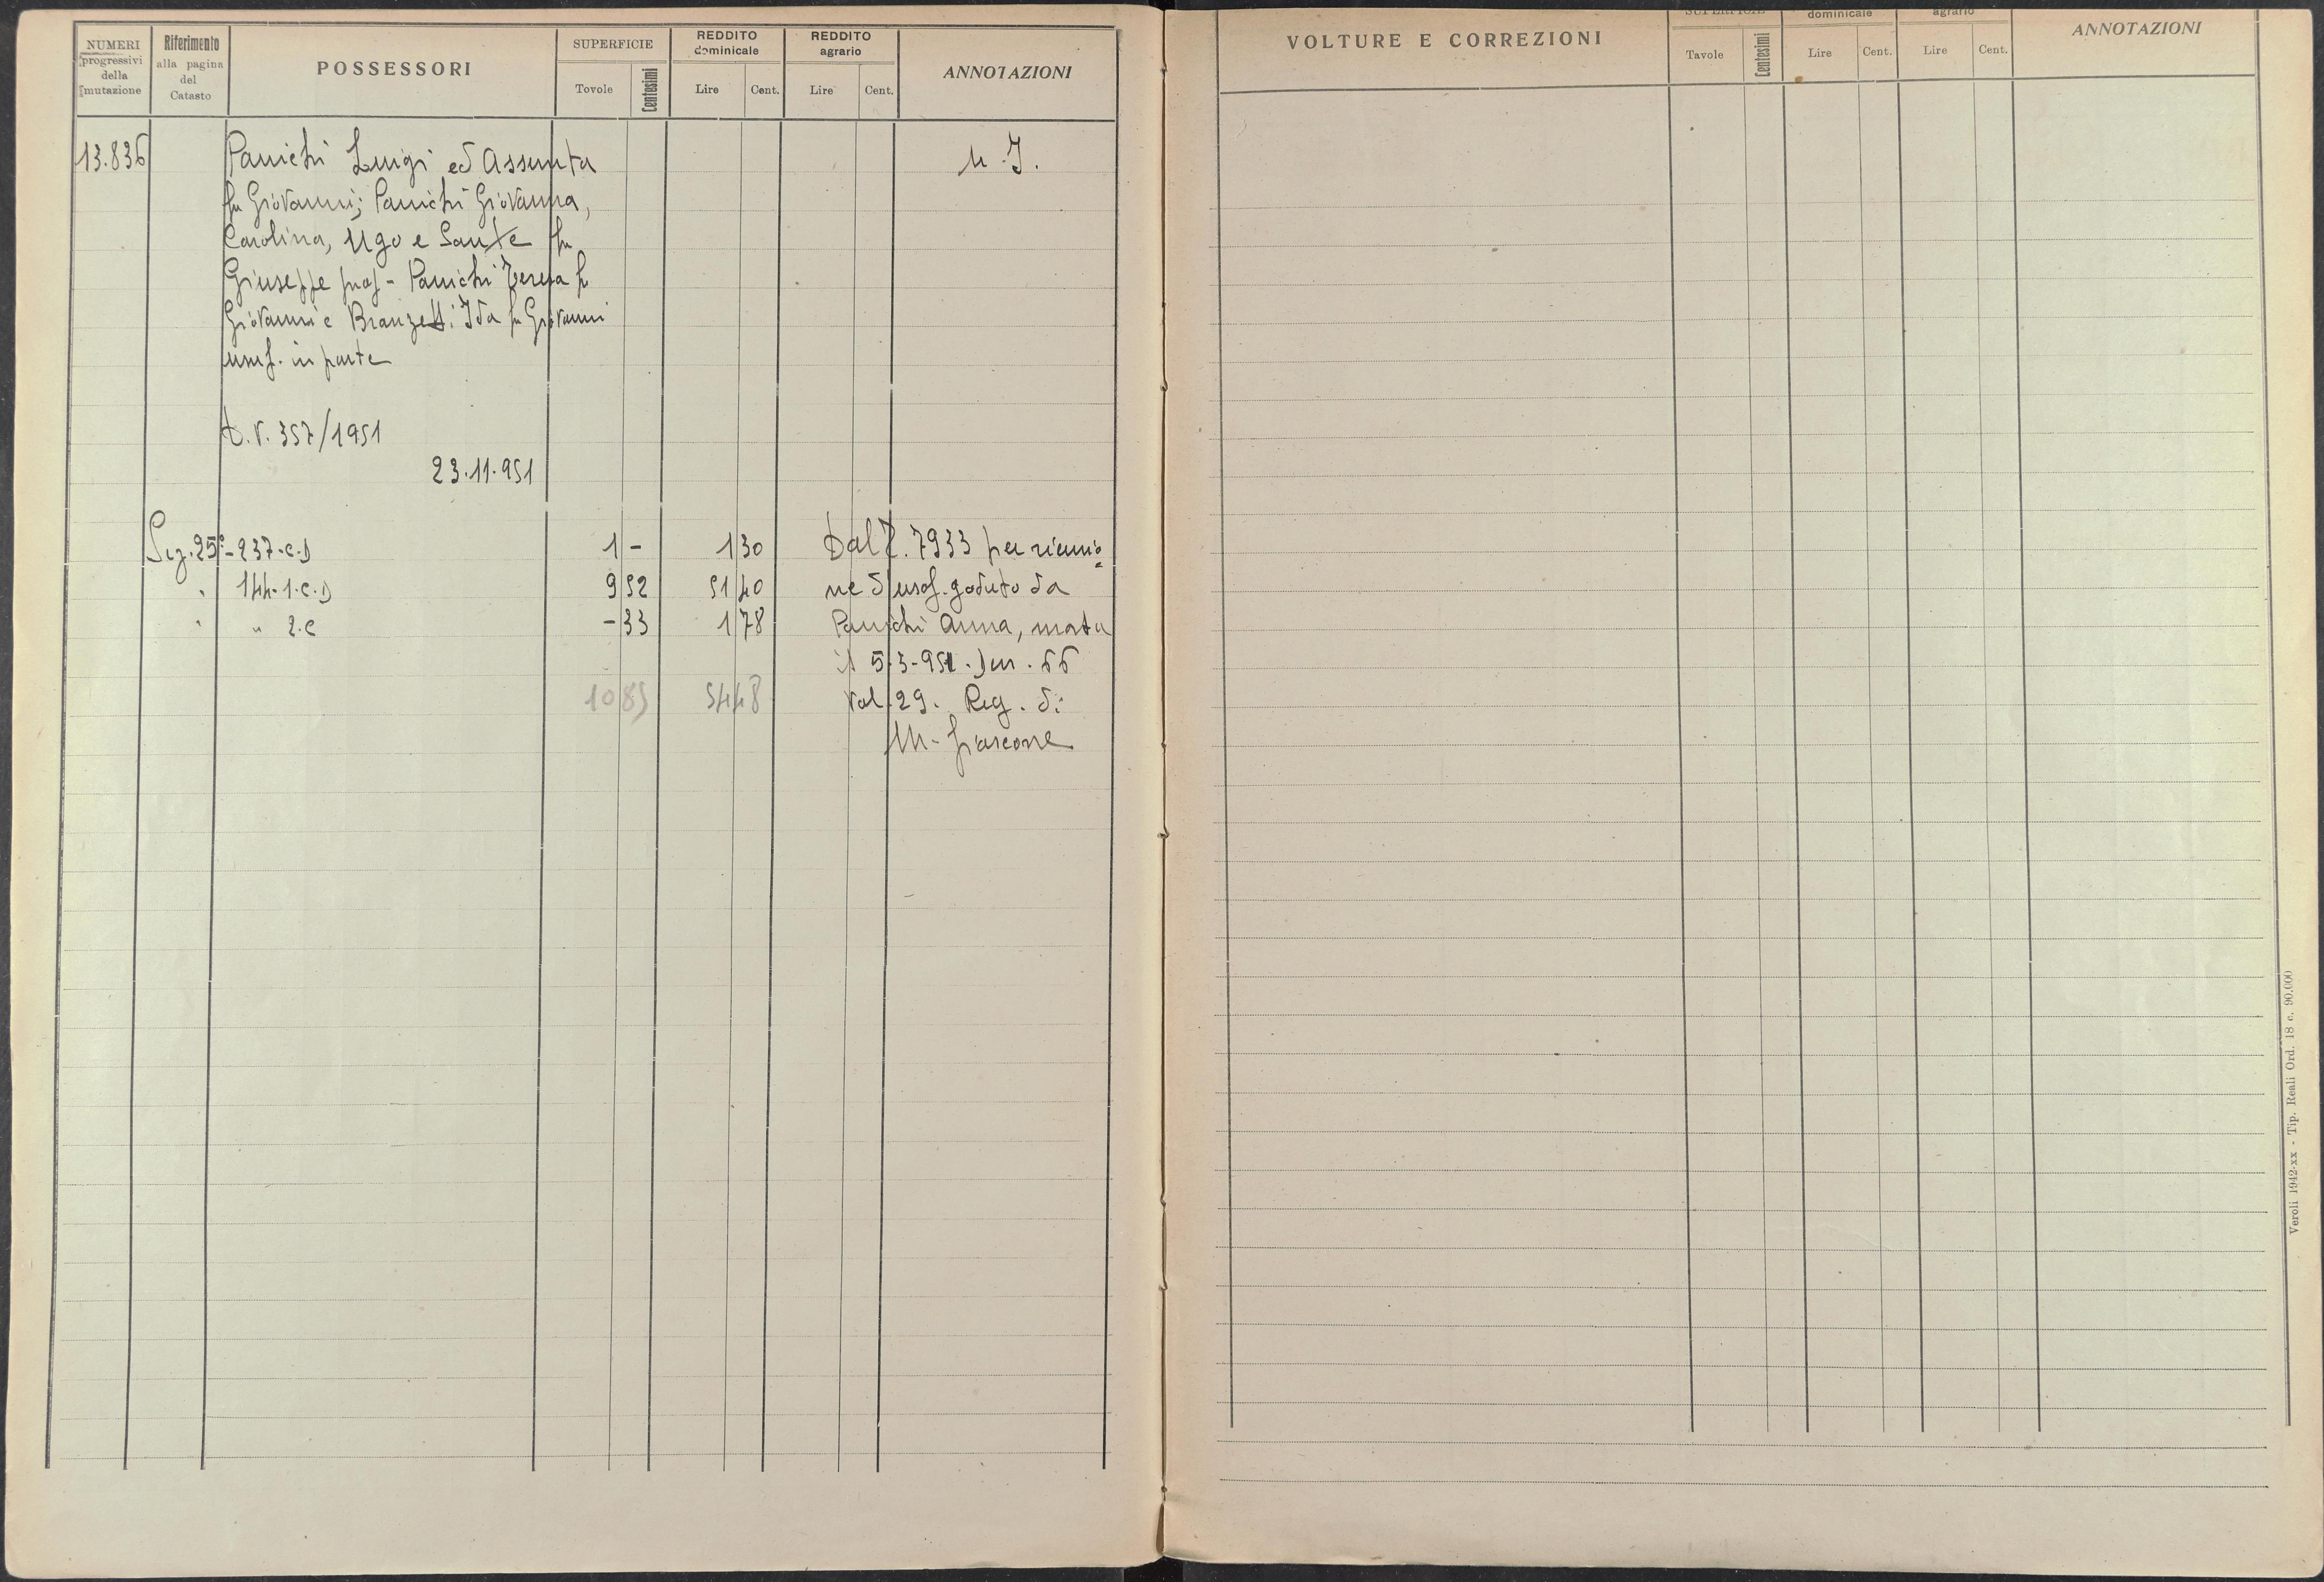 NUMERI
progressivi
della
mutazione
Riferimento
alla pagina
del
Catasto
POSSESSORI
SUPERFICIE
Tovole
Centesimi
REDDITO
dominicale
Lire
Cent.
REDDITO
agrario
Lire
Cent.
ANNOTAZIONI
13.836
Panichi Luigi ed Assunta
fu Giovanni; Panichi Giovanna,
Carolina, Ugo e Sante fu
Giuseppe prop - Panichi Teresa fu
Giovanni e Branzetti Ida fu Giovanni
usuf. in parte
M. I.
D.V. 357/1951
23.11.951
Sez. 25ª - 237 - C. D 1 - 1 30 Dal P. 7933 per riunio
" 144 - 1. C. D 9 52 51 40 ne d'usof. goduto da
" " 2. C - 33 1 78 Panichi Anna, morta
il 5-3-951. Den. 66
10 85 54 48 Vol. 29. Reg. di
M-fiascone
VOLTURE E CORREZIONI
SUPERFICIE
Tavole
Centesimi
dominicale
Lire
Cent.
agrario
Lire
Cent.
ANNOTAZIONI
Veroli 1942-XX - Tip. Reali Ord. 18 c. 90.000